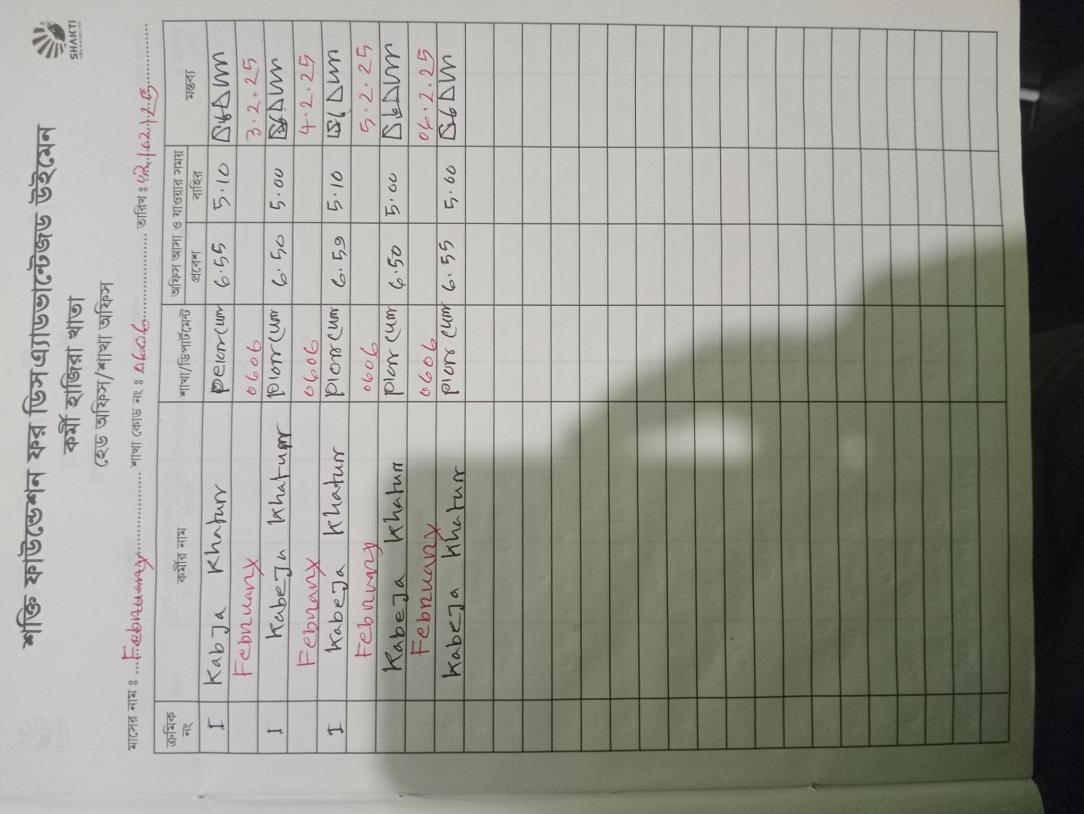 SHAKTI
শক্তি ফাউন্ডেশন ফর ডিসএ্যাডভান্টেজড উইমেন
কর্মী হাজিরা খাতা
হেড অফিস/শাখা অফিস
মাসের নাম ঃ February শাখা কোড নং ঃ 0606 তারিখ ঃ 02/02/25
ক্রমিক নং কর্মীর নাম শাখা/ডিপার্টমেন্ট অফিস আসা ও যাওয়ার সময় মন্তব্য
প্রবেশ বাহির
I Kabja Khatun 6.55 5.10
February 0606 3.2.25
I Kabeja Khatun 6.50 5.00
February 0606 4.2.25
I Kabeja Khatun 6.50 5.10
February 0606 5.2.25
Kabeja Khatun 6.50 5.00
February 0606 06.2.25
Kabeja Khatun 6.55 5.00